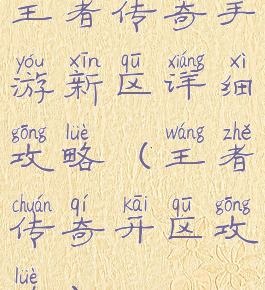 王者传奇手
yóu xīn qū xiáng xì
游新区详细
gōng lüè wáng zhě
攻略(王者
chuán qí kāi qū gōng
传奇开区攻
lüè